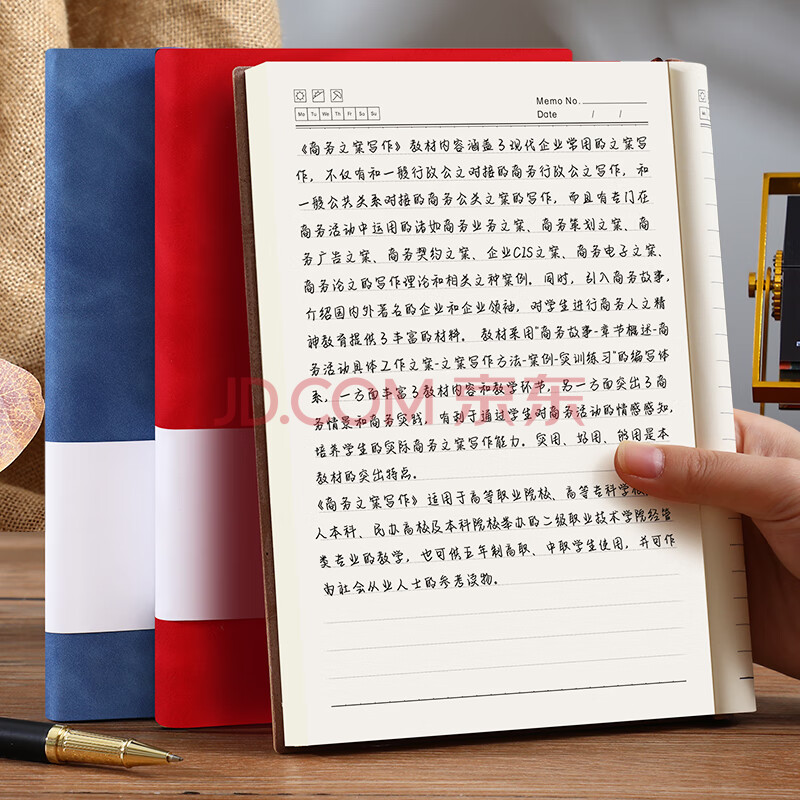 Memo No.
Mo Tu We Th Fr Sa Su
Date / /
《商务文案写作》教材内容涵盖了现代企业常用的文案写
作，不仅有和一般行政公文对接的商务行政公文写作，和
一般公共关系对接的商务公关文案的写作，而且有专门在
商务活动中运用的诸如商务业务文案、商务策划文案、商
务广告文案、商务契约文案、企业CIS文案、商务电子文案、
商务论文的写作理论和相关文种案例。同时，引入商务故事，
介绍国内外著名的企业和企业领袖，对学生进行商务人文精
神教育提供了丰富的材料。教材采用"商务故事-章节概述-商
务活动具体工作文案-文案写作方法-案例-实训练习"的编写体
系，一方面丰富了教材内容和教学环节，另一方面突出了商
务情景和商务实践，有利于通过学生对商务活动的情感感知，
培养学生的实际商务文案写作能力。实用、好用、够用是本
教材的突出特点。
《商务文案写作》适用于高等职业院校、高等专科学校、
人本科、民办高校及本科院校举办的二级职业技术学院经管
类专业的教学，也可供五年制高职、中职学生使用，并可作
为社会从业人士的参考读物。
JD.COM 京东